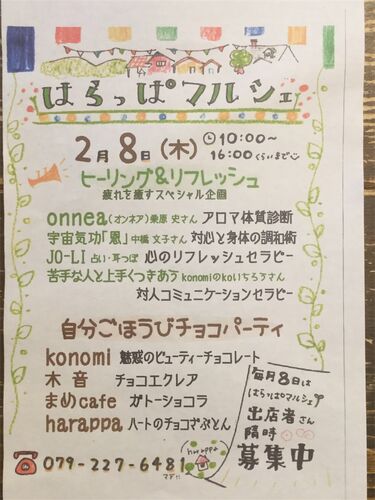 はらっぱマルシェ
2月8日(木) 10:00~
16:00くらいまで
ヒーリング&リフレッシュ
疲れを癒すスペシャル企画
onnea(オンネア)乗原 史さん アロマ体質診断
宇宙気功「恩」中橋 文子さん 対心と身体の調和術
JO-LI 占い・耳つぼ 心のリフレッシュセラピー
苦手な人と上手くつきあう konomiのkoいちろうさん
対人コミュニケーションセラピー
自分ごほうびチョコパーティ
konomi 魅惑のビューティーチョコレート
木音 チョコエクレア
まめcafe ガトーショコラ
harappa ハートのチョコざぶとん
毎月8日は
はらっぱマルシェ
出店者さん
随時
募集中
harappa
079-227-6481
マデ!!